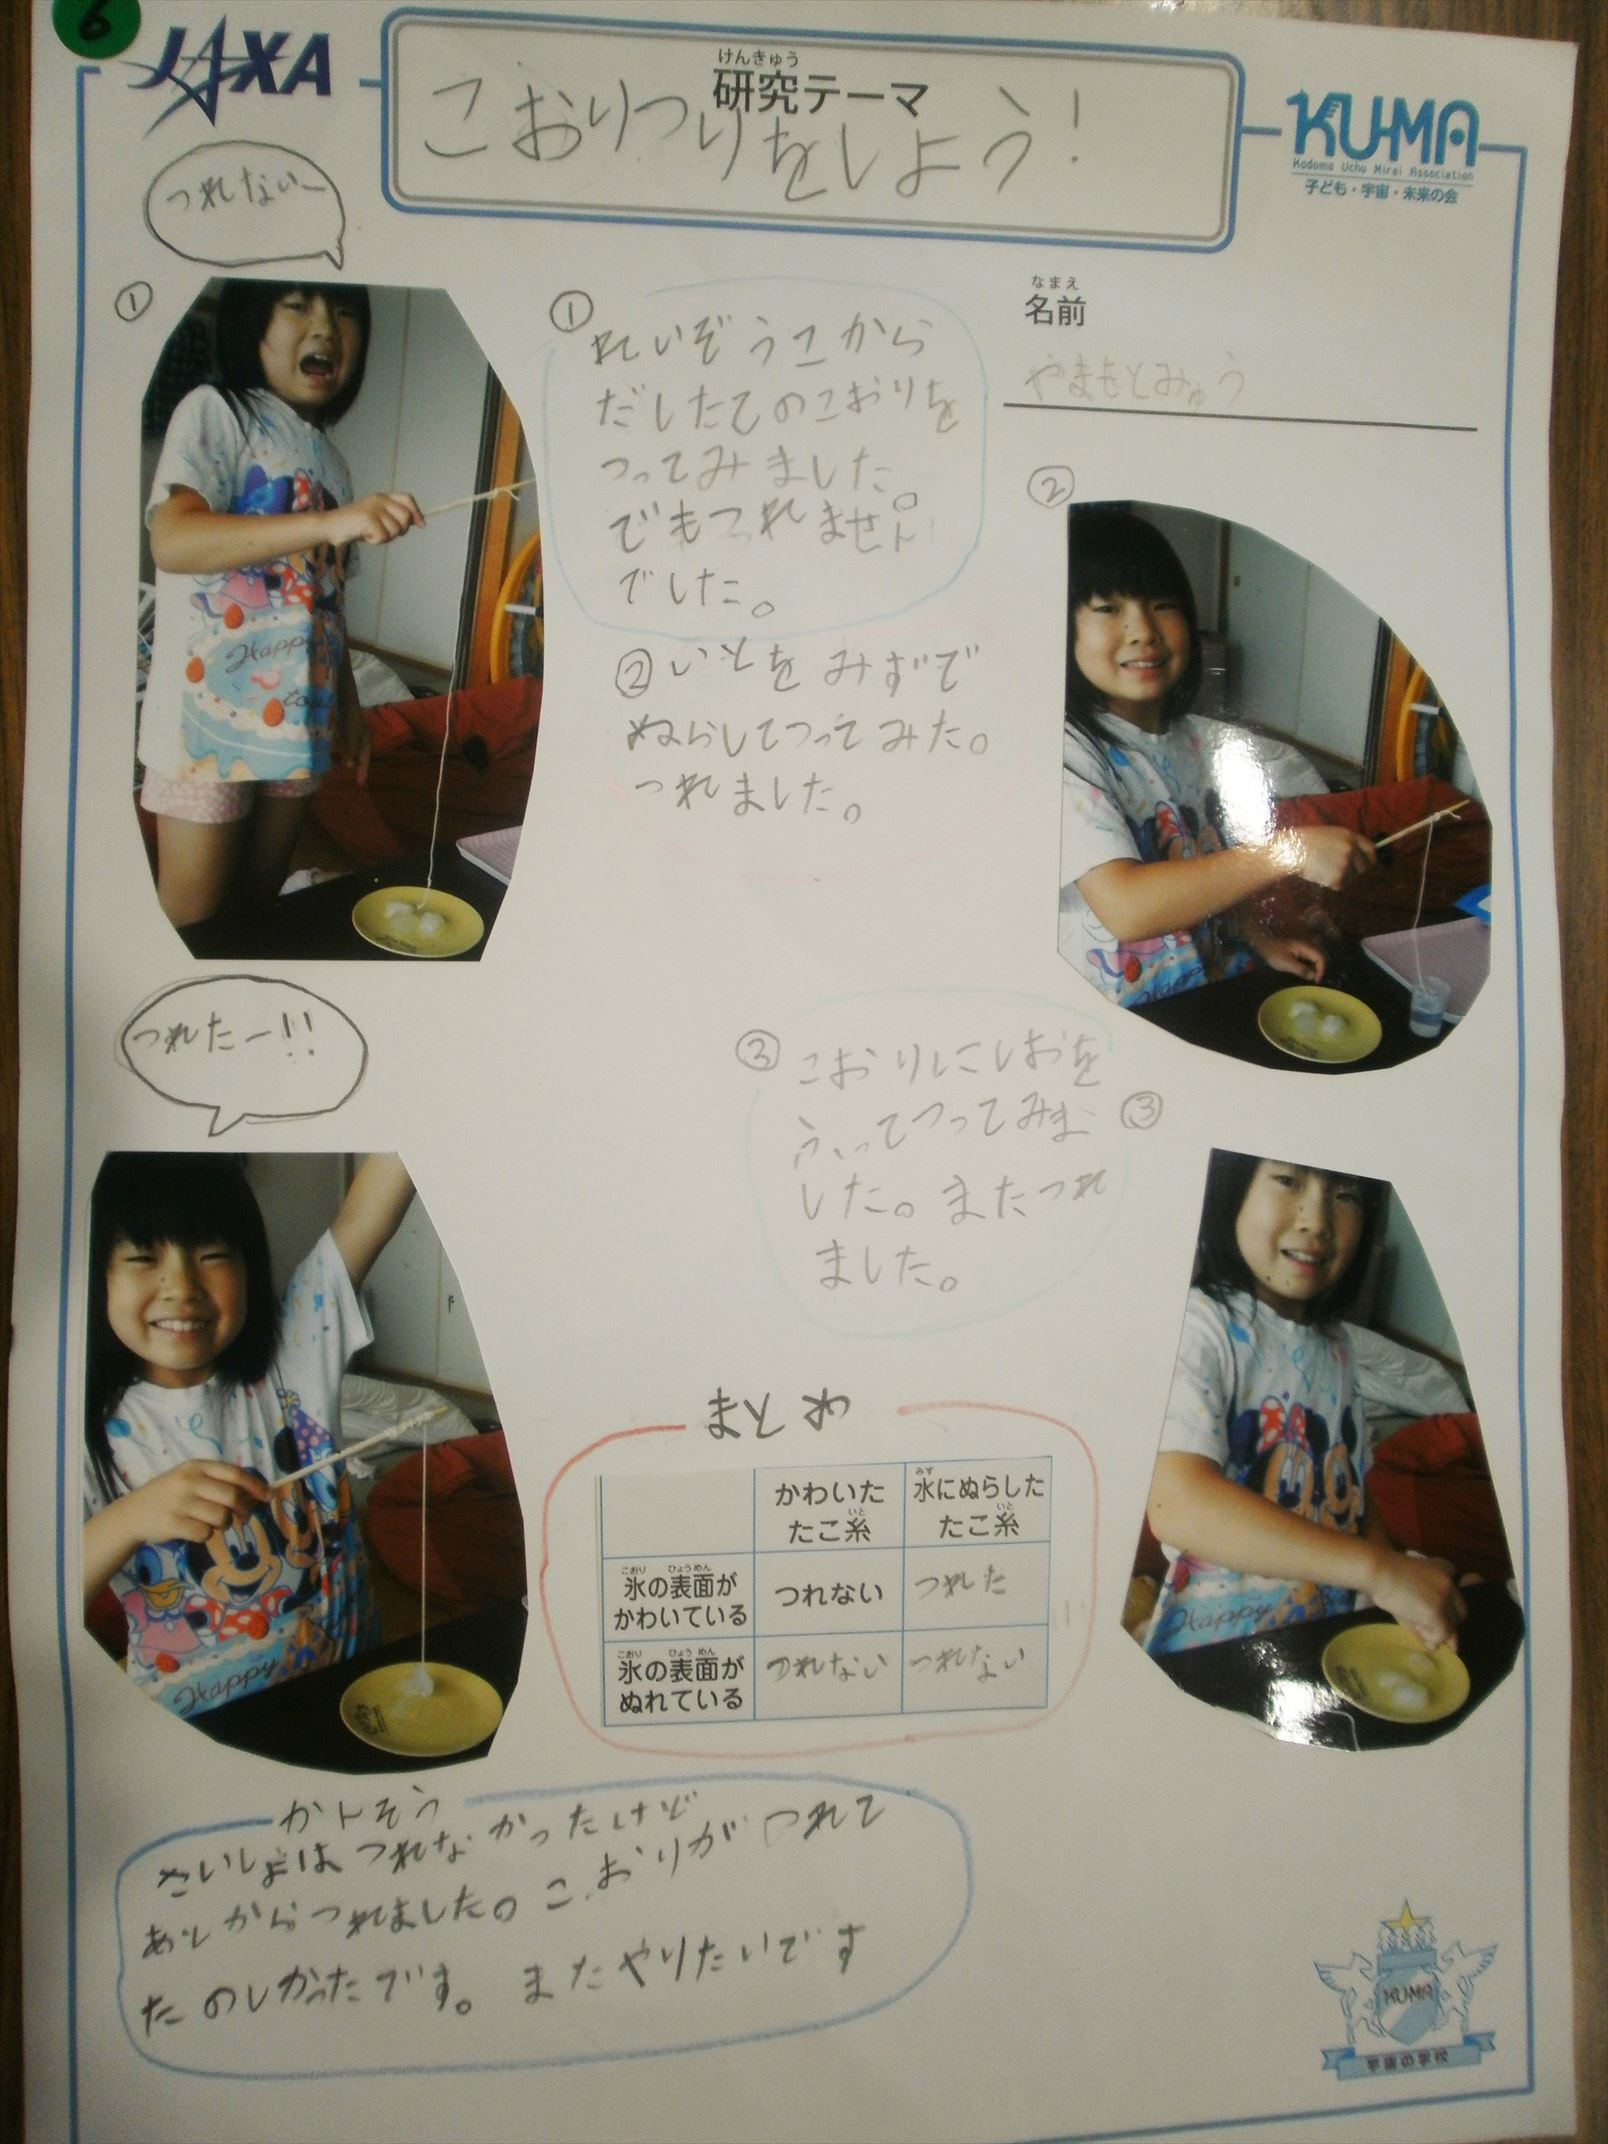 6
JAXA
けんきゅう
研究テーマ
こおりつりをしよう!
KU-MA
Kodomo Uchu Mirai Association
子ども・宇宙・未来の会
つれないー
なまえ
名前
やまもとみゅう
①
①
れいぞうこから
だしたてのこおりを
つってみました。
でもつれません
でした。
②いとをみずで
ぬらしてつってみた。
つれました。
②
つれたー!!
③
こおりにしおを
ふってつってみま
した。またつれ
ました。
③
まとめ
かわいた
たこ糸
いと
みず
水にぬらした
たこ糸
いと
こおり ひょうめん
氷の表面が
かわいている
つれない
つれた
こおり ひょうめん
氷の表面が
ぬれている
つれない
つれない
かんそう
さいしょは つれなかったけど
あとからつれました。こおりがつれて
たのしかったです。またやりたいです
Happy
Happy
Happy
KUMA
宇宙の学校